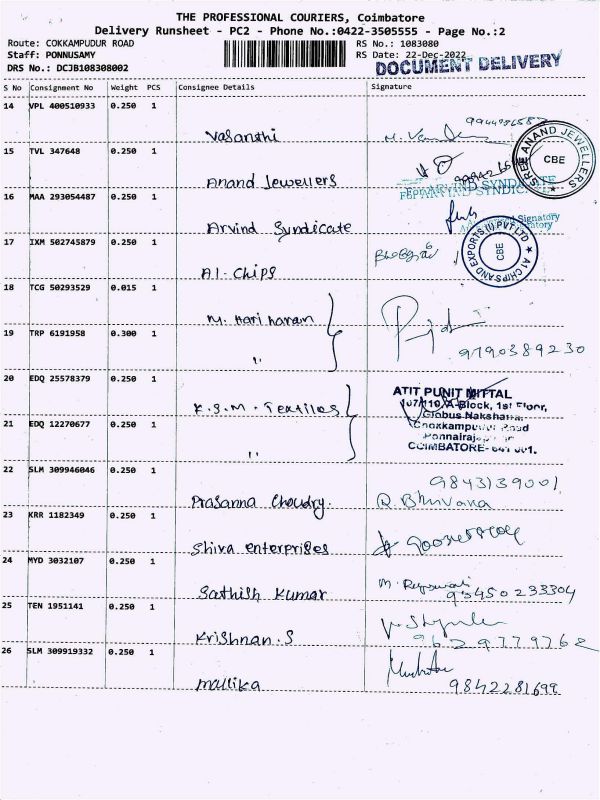 THE PROFESSIONAL COURIERS, Coimbatore
Delivery Runsheet - PC2 - Phone No.:0422-3505555 - Page No.:2
Route: COKKAMPUDUR ROAD
RS No.: 1083080
Staff: PONNUSAMY
RS Date: 22-Dec-2022
DRS No.: DCJB108308002
DOCUMENT DELIVERY
S No Consignment No Weight PCS Consignee Details Signature
14 VPL 400510933 0.250 1
Vasanthi
15 TVL 347648 0.250 1
Anand Jewellers
SREE ANAND JEWELLERS
CBE
16 MAA 293054487 0.250 1
For ARVIND SYNDICATE
Arvind Syndicate
Signatory
17 IXM 502745879 0.250 1
A1-Chips
A1 CHIPS AND EXPORTS (I) PVT LTD
CBE
18 TCG 50293529 0.015 1
M. Hari haran
19 TRP 6191958 0.300 1
"
9790389230
20 EDQ 25578379 0.250 1
K.S.M. Textiles
ATIT PUNIT MITTAL
A-Block, 1st Floor,
Globus
21 EDQ 12270677 0.250 1
"
Road
COIMBATORE-
22 SLM 309946046 0.250 1
9843139001
Prasanna Choudry
R. Bhuvana
23 KRR 1182349 0.250 1
Shiva enterprises
24 MYD 3032107 0.250 1
Sathish Kumar
9345023 3304
25 TEN 1951141 0.250 1
Krishnan.S
9629779762
26 SLM 309919332 0.250 1
Mallika
9842281699